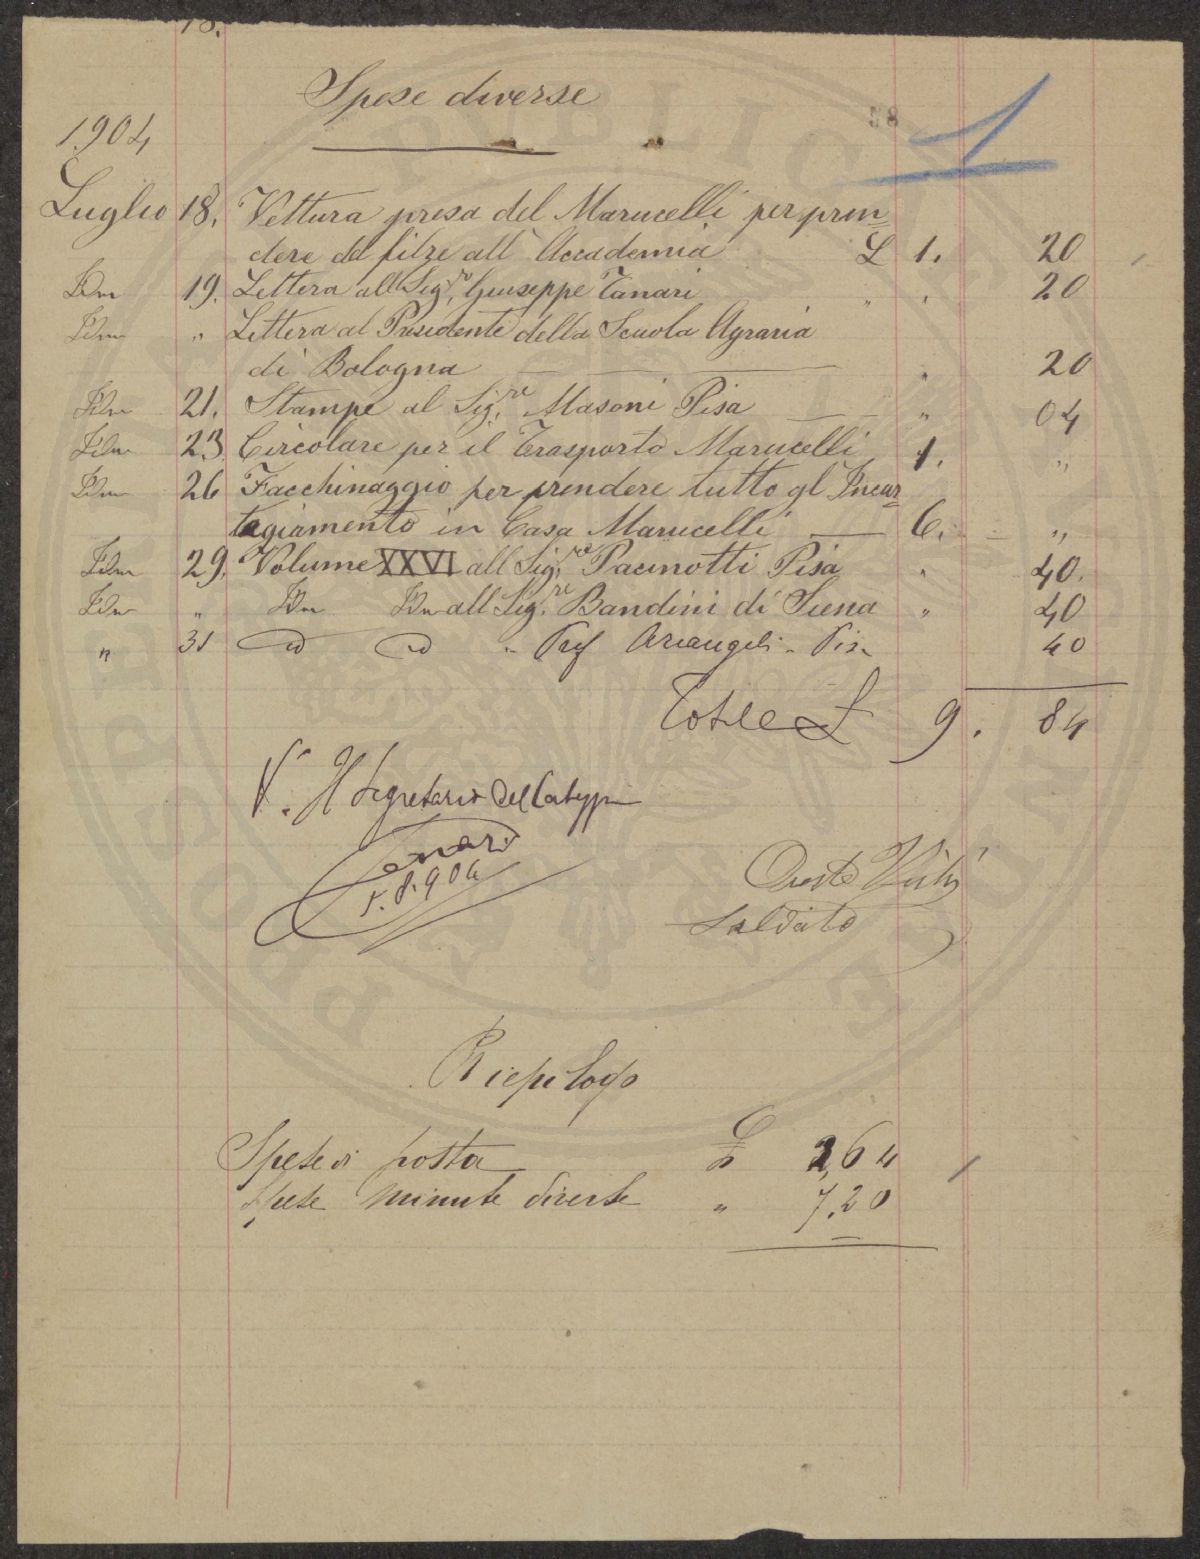 18.
Spese diverse
1
1904
Luglio 18. Vettura presa del Marucelli per pren=
dere del filze all' Accademia L 1. 20
Idm 19. Lettera all Sig.re Giuseppe Tanari " . 20
Idm " Lettera al Presidente della Scuola Agraria
di Bologna " 20
Idm 21. Stampe al Sig.re Masoni Pisa " 04
Idm 23 Circolare per il Trasporto Marucelli 1. "
Idm 26 Facchinaggio per prendere tutto gl' Incar=
tagiamento in Casa Marucelli 6. "
Idm 29. Volume XXVI all Sig.re Pacinotti Pisa " 40.
Idm " Idm Idm all Sig.re Bandini di Siena " 40
" 31 id id " Prof Arcangeli - Pisa 40
Totale L 9. 84
V. Il Segretario del
5.8.904
Oreste
Saldato
Riepilogo
Spese di posta £ 2,64
Spese minute diverse " 7.20